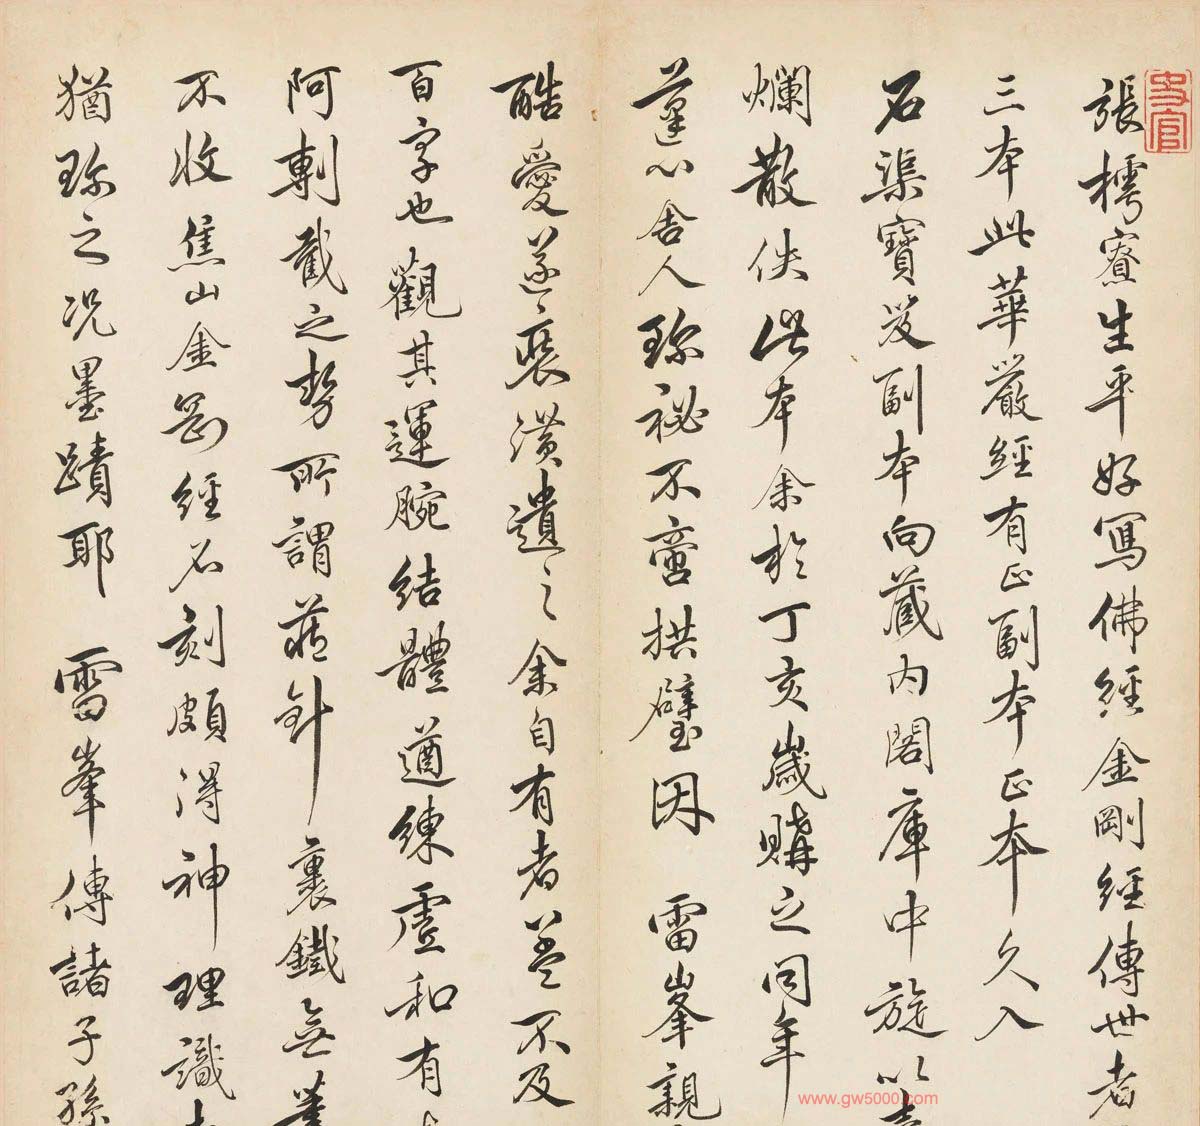 史官
張樗寮生平好寫佛經金剛經傳世者
三本此華嚴經有正副本正本久入
石渠寶笈副本向藏內閣庫中旋以
爛散佚此本余於丁亥歲購之同年
蘧心舍人珍祕不啻拱璧因 雷峯親
酷愛遂裝潢遺之余自有者並不及
百字也觀其運腕結體遒練虛和有
阿剸截之勢所謂藏針裹鐵無
不收焦山金剛經石刻頗得神理識
猶珍之况墨蹟耶 雷峯傳諸子孫
www.gw5000.com